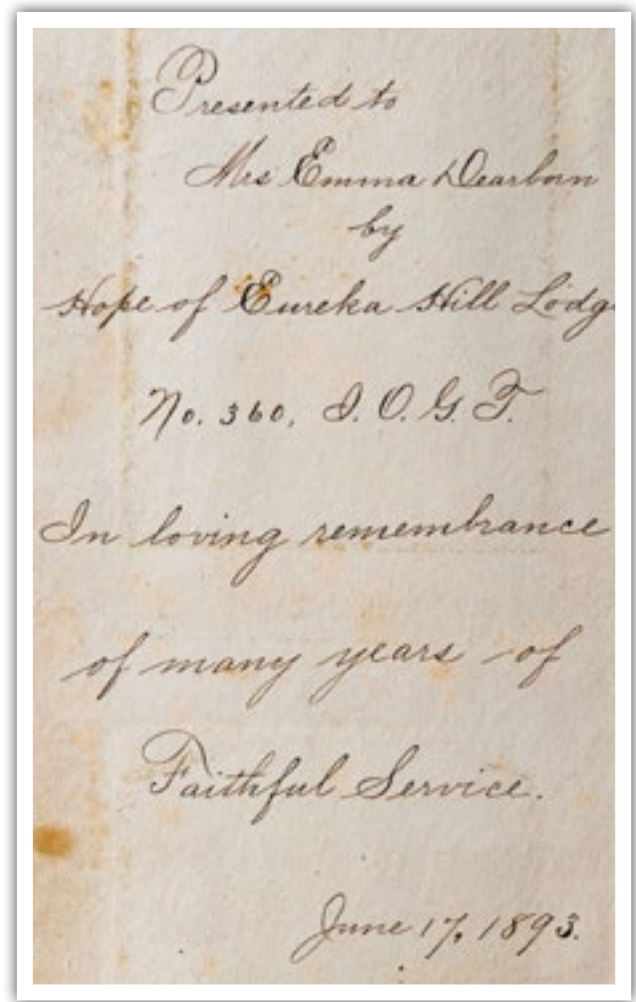 Presented to
Mrs Emma Dearborn
by
Hope of Eureka Hill Lodg
No. 360, I. O. G. T.
In loving remembrance
of many years of
Faithful Service.
June 17, 1893.